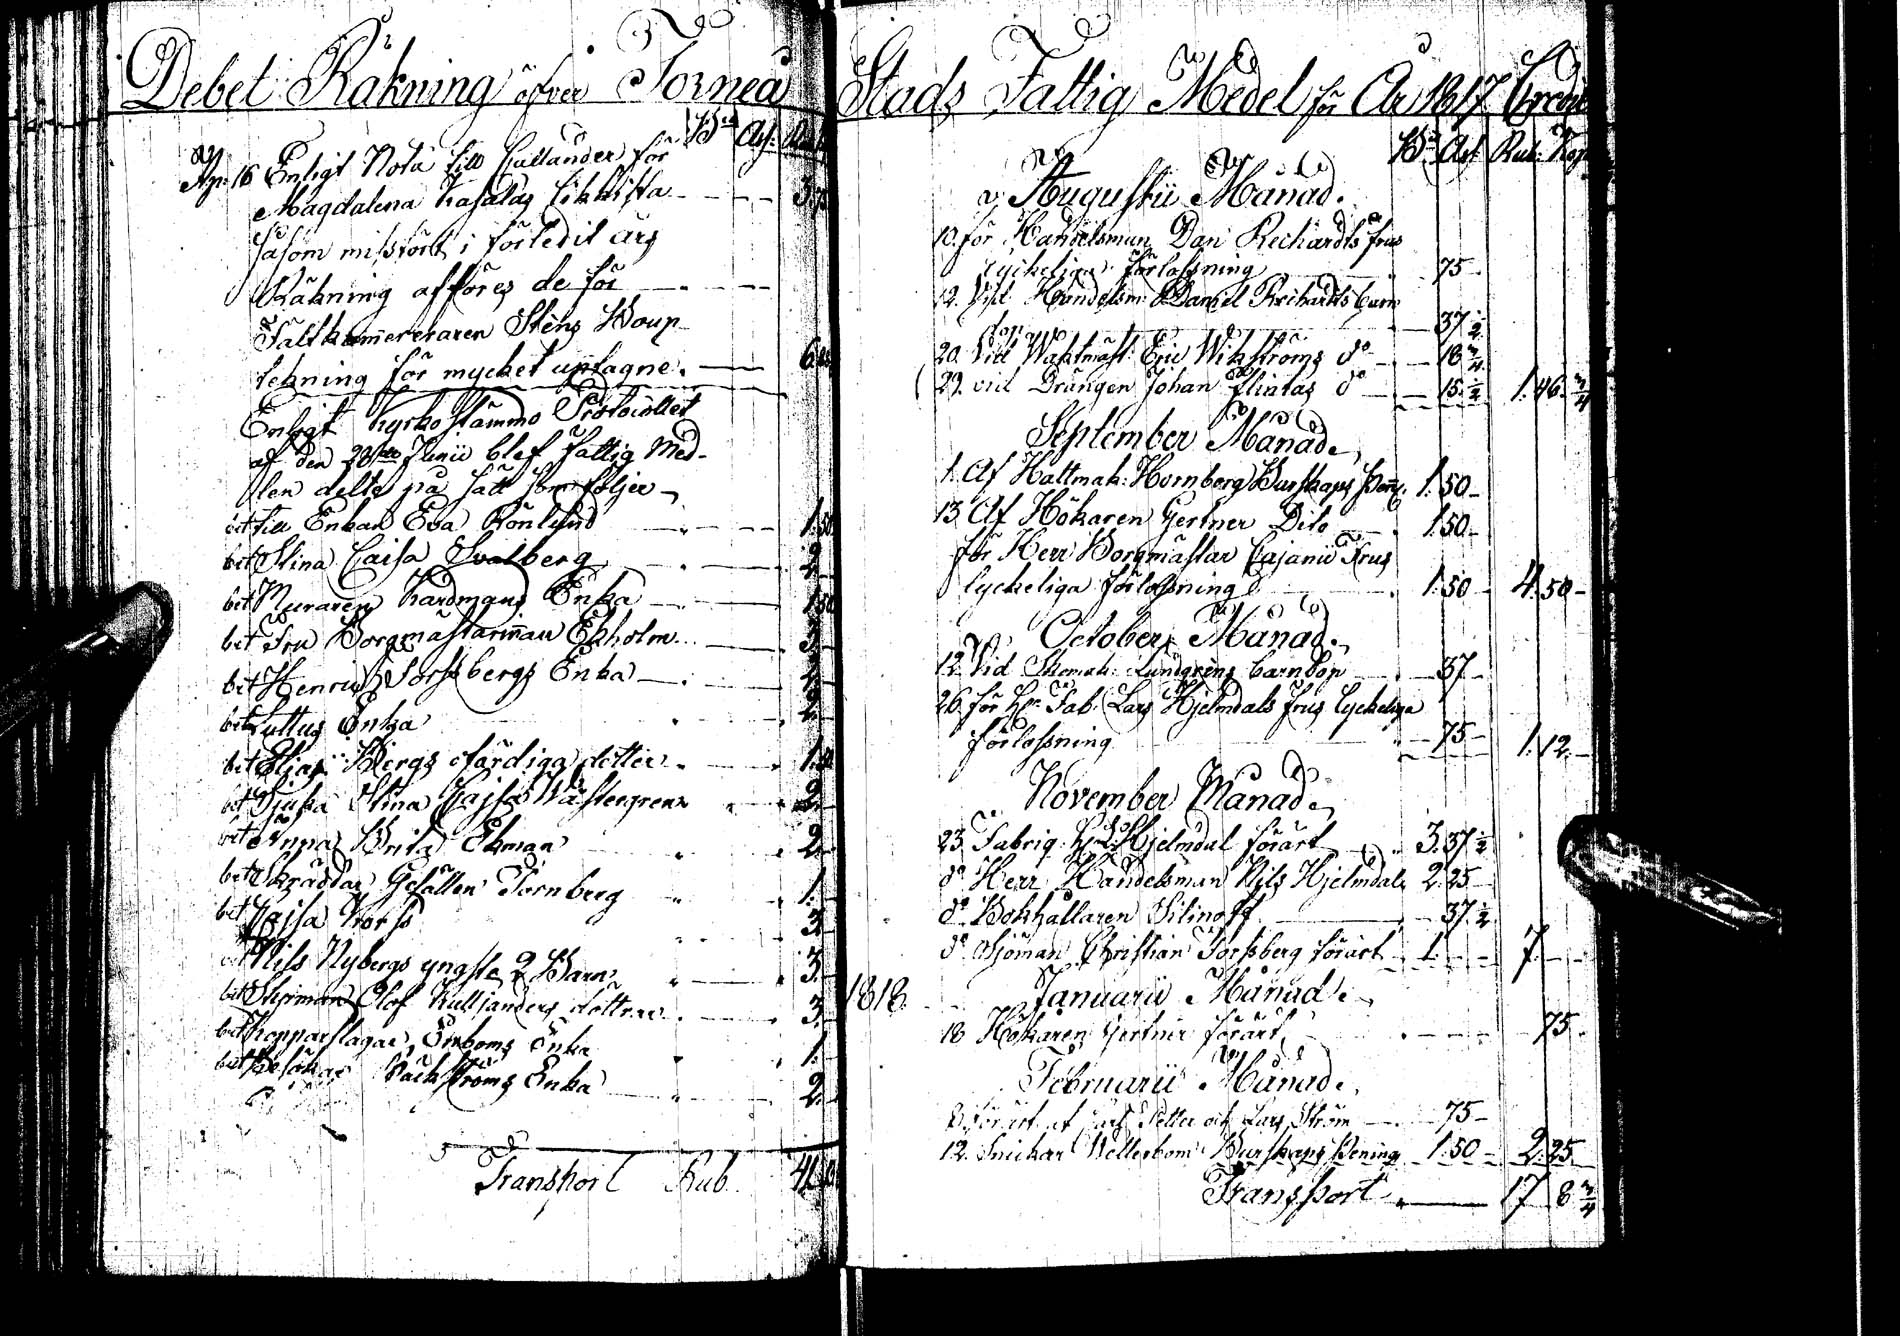 Debet Räkning öfver Torneå
Bco Ass: Rub
Ap: 16 Enligt Nota till Callander för
Magdalena Kasalas likkista 3:75
Såsom missfört i förledit års
Räkning afföres de för
Fältkamereraren Stens Boup
tekning för mycket uptagne. 6
Enligt Kyrkostämmo Protocollet
af den 28de Junii blef fattig Med-
len delte på sätt som följer
bet till Enkan Eva Rönlund 1:50
bet Stina Caisa Svalberg 2
bet Muraren Hardmans Enka 1:50
bet Fru Borgmästarinnan Ekholm 3
bet Henric Forssbergs Enka 2
bet Luttus Enka 2
bet Elias Bergs ofärdiga dotter 1:50
bet Sjuka Stina Cajsa Wästergren 2
bet Anna Brita Ekman 2
bet Skräddar Gesällen Törnberg 1
bet Cajsa Korss 3
bet Nils Nybergs yngste 2 Barn 3
bet Styrman Olof Kulljanders döttrar 3
bet Kopparslagar Enboms Enka 1
bet Besökar Bäckströms Enka 2
Transport Rub. 41
Stads Fattig Medel för År 1817 Credit
Bco Ass: Rub: Kop
Augustii Månad.
10. för Handelsman Dan Reichardts frus
lyckeliga förlossning 75
12. Vid Handelsm: Daniel Reichardts barn
dop 37 1/2
20. Vid Waktmäst: Eric Wikströms do 18 3/4
29. vid Drängen Johan Flintas do 15 1/2 1:46 3/4
September Månad.
1. Af Hattmak: Hornberg Burskaps Penn: 1:50
13. Af Hökaren Gertner Dito 1:50
för Herr Borgmästar Cajanii Frus
lyckeliga förlossning 1:50 4:50
October Månad.
12. Vid Skomak: Lundgrens barndop 37
26. för Hr Fab: Lars Hjelmdals frus lyckeliga
förlossning 75 1:12
November Månad.
23. Fabriq: Hr L: Hjelmdal förärt 3:37 1/2
do Herr Handelsman Nils Hjelmdahl 2:25
do Bokhållaren Silinoff 37 1/2
do Sjöman Christian Forssberg förärt 1 7
1818. Januarii Månad.
18 Hökaren Gertner förärt 75
Februarii Månad.
8. förärt af Carl Petter och Lars Ström 75
12. Snickar Wetterbom Burskaps Pening 1:50 2:25
Transport 17 8 3/4